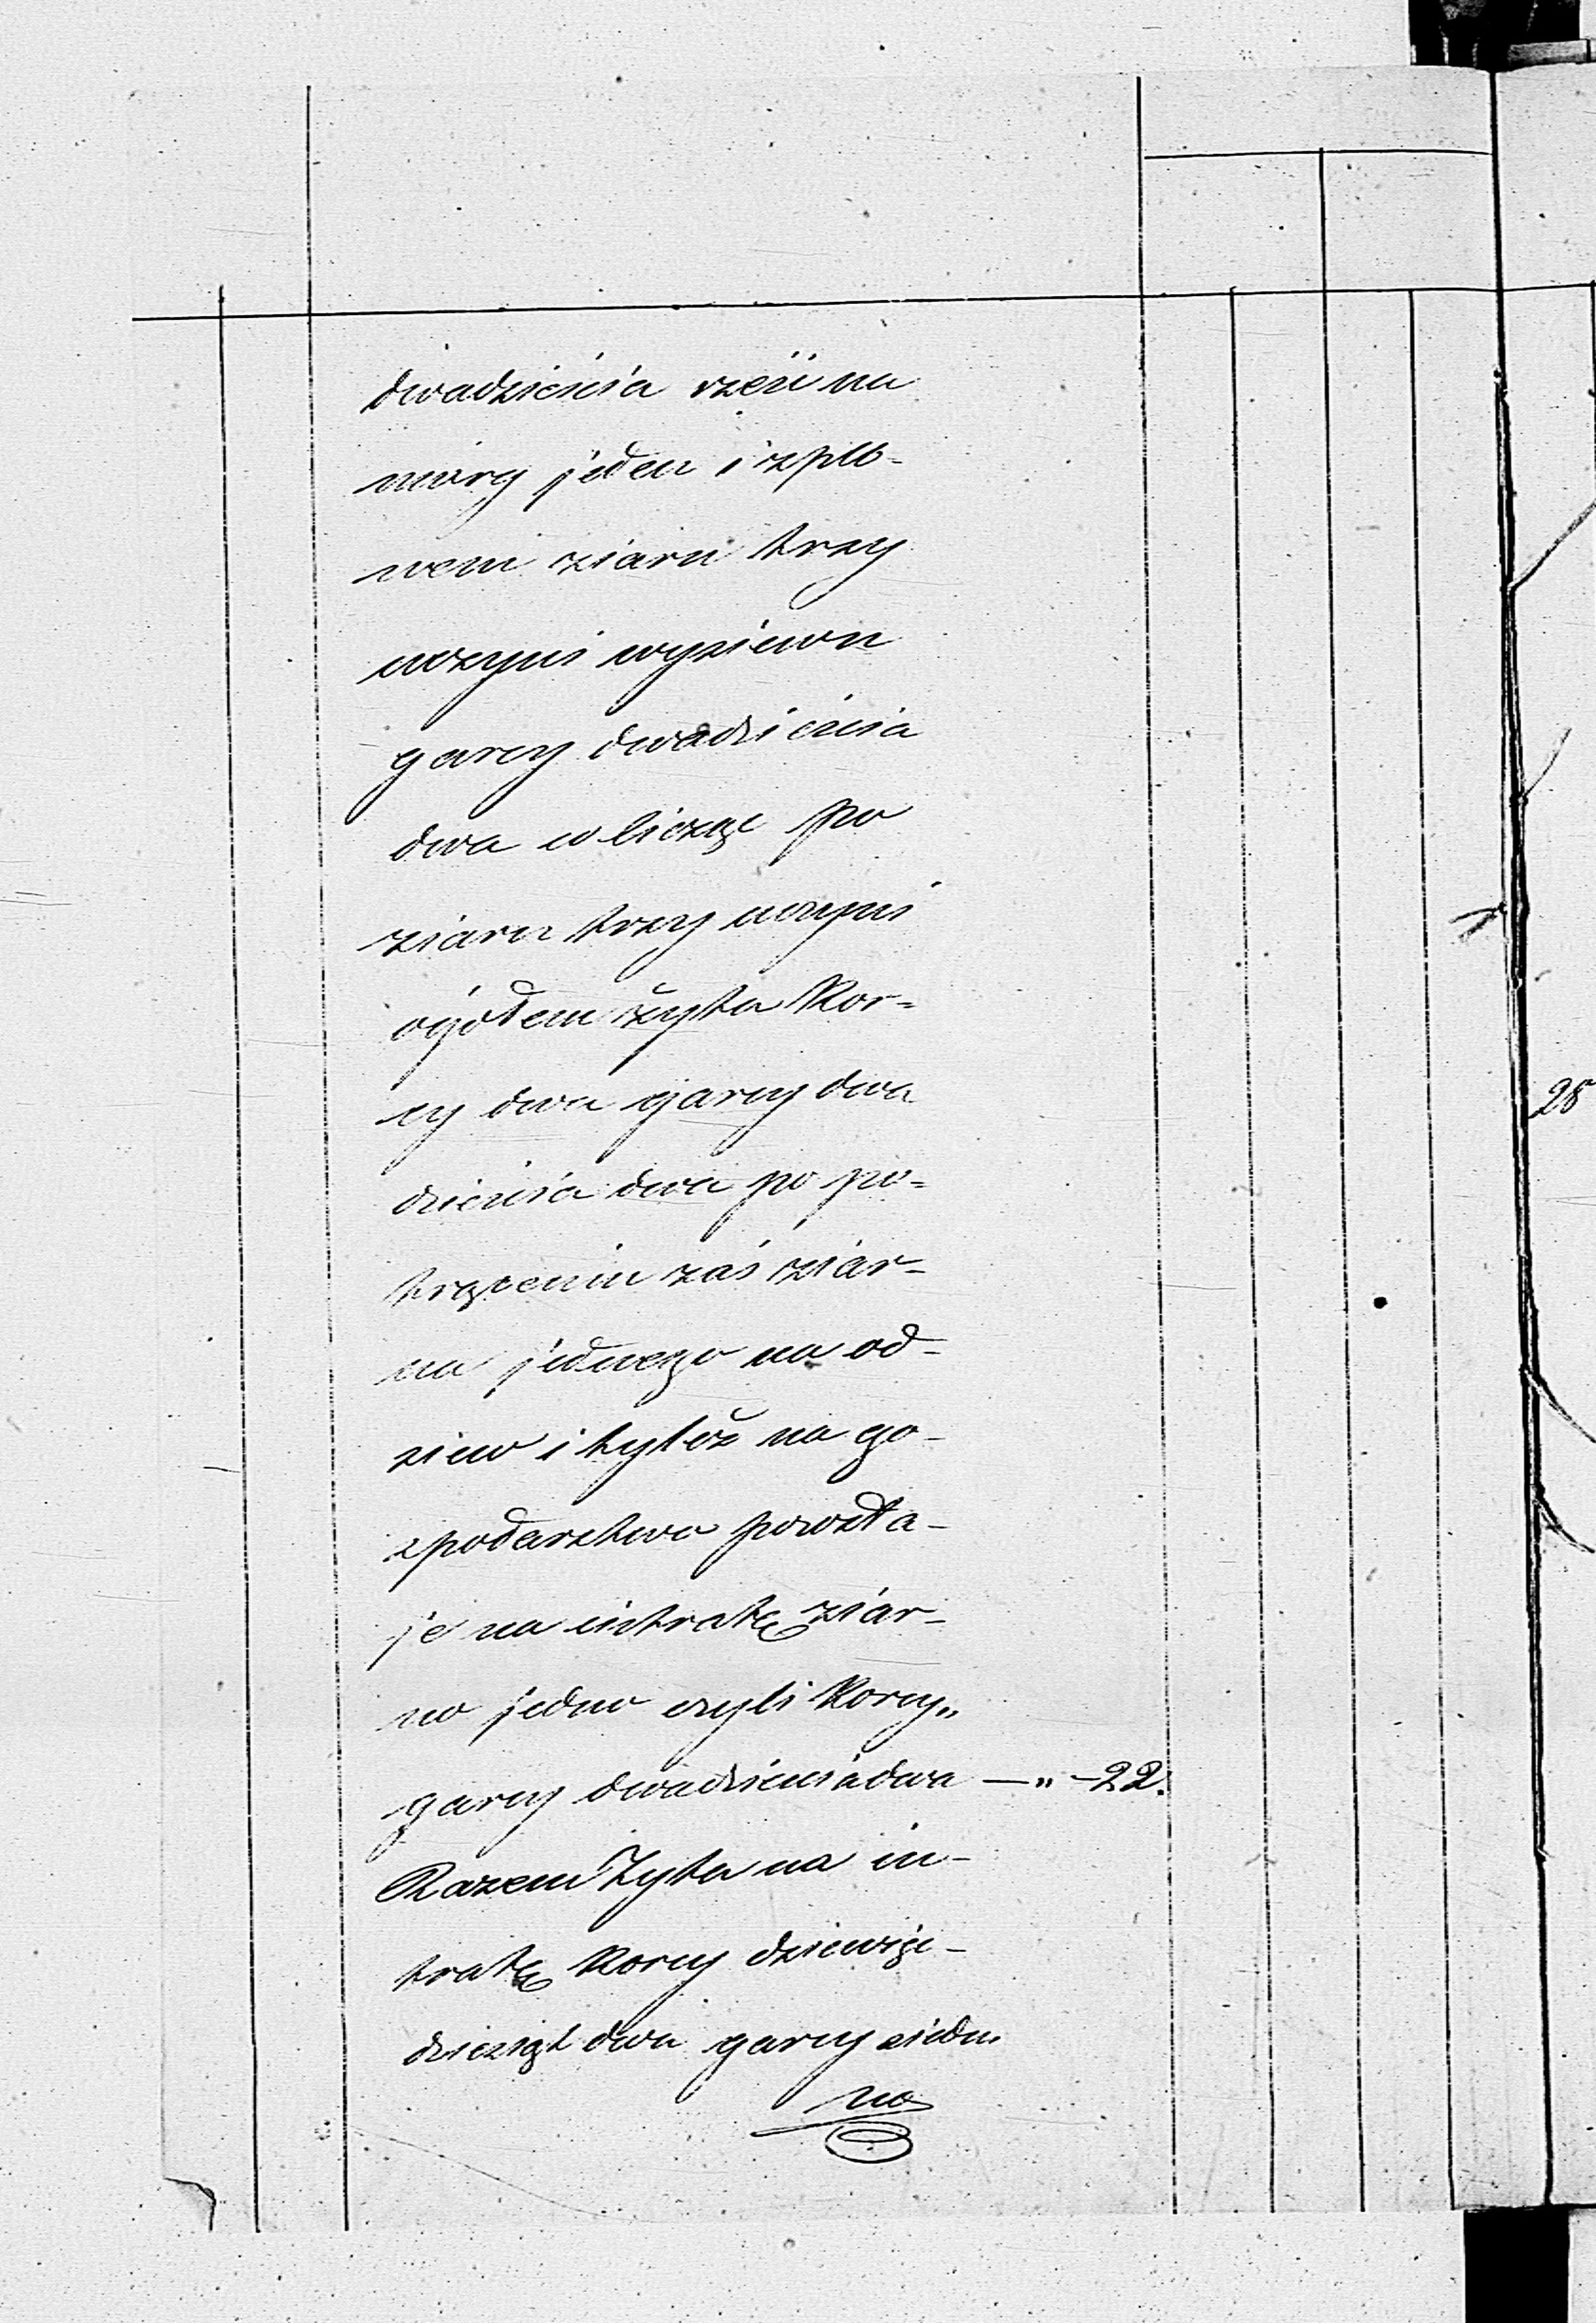 dwadzieścia sześć na
morg jeden i z plo-
nem ziarn trzy
uczyni wysiewu
garcy dwadzieścia
dwa w licząc po
ziarn trzy uczyni
ogółem żyta Kor=
cy dwa garcy dwa
dzieścia dwa po po=
trąceniu zaś ziar-
na jednego na od-
siew i tyloż na go-
spodarstwo pozosta-
je na intratę ziar-
no jedno czyli Korcy „
garcy dwadzieścia dwa — „ — 22.
Razem Żyta na in-
tratę Korcy dziewięć-
dziesiąt dwa garcy siedm
na
28